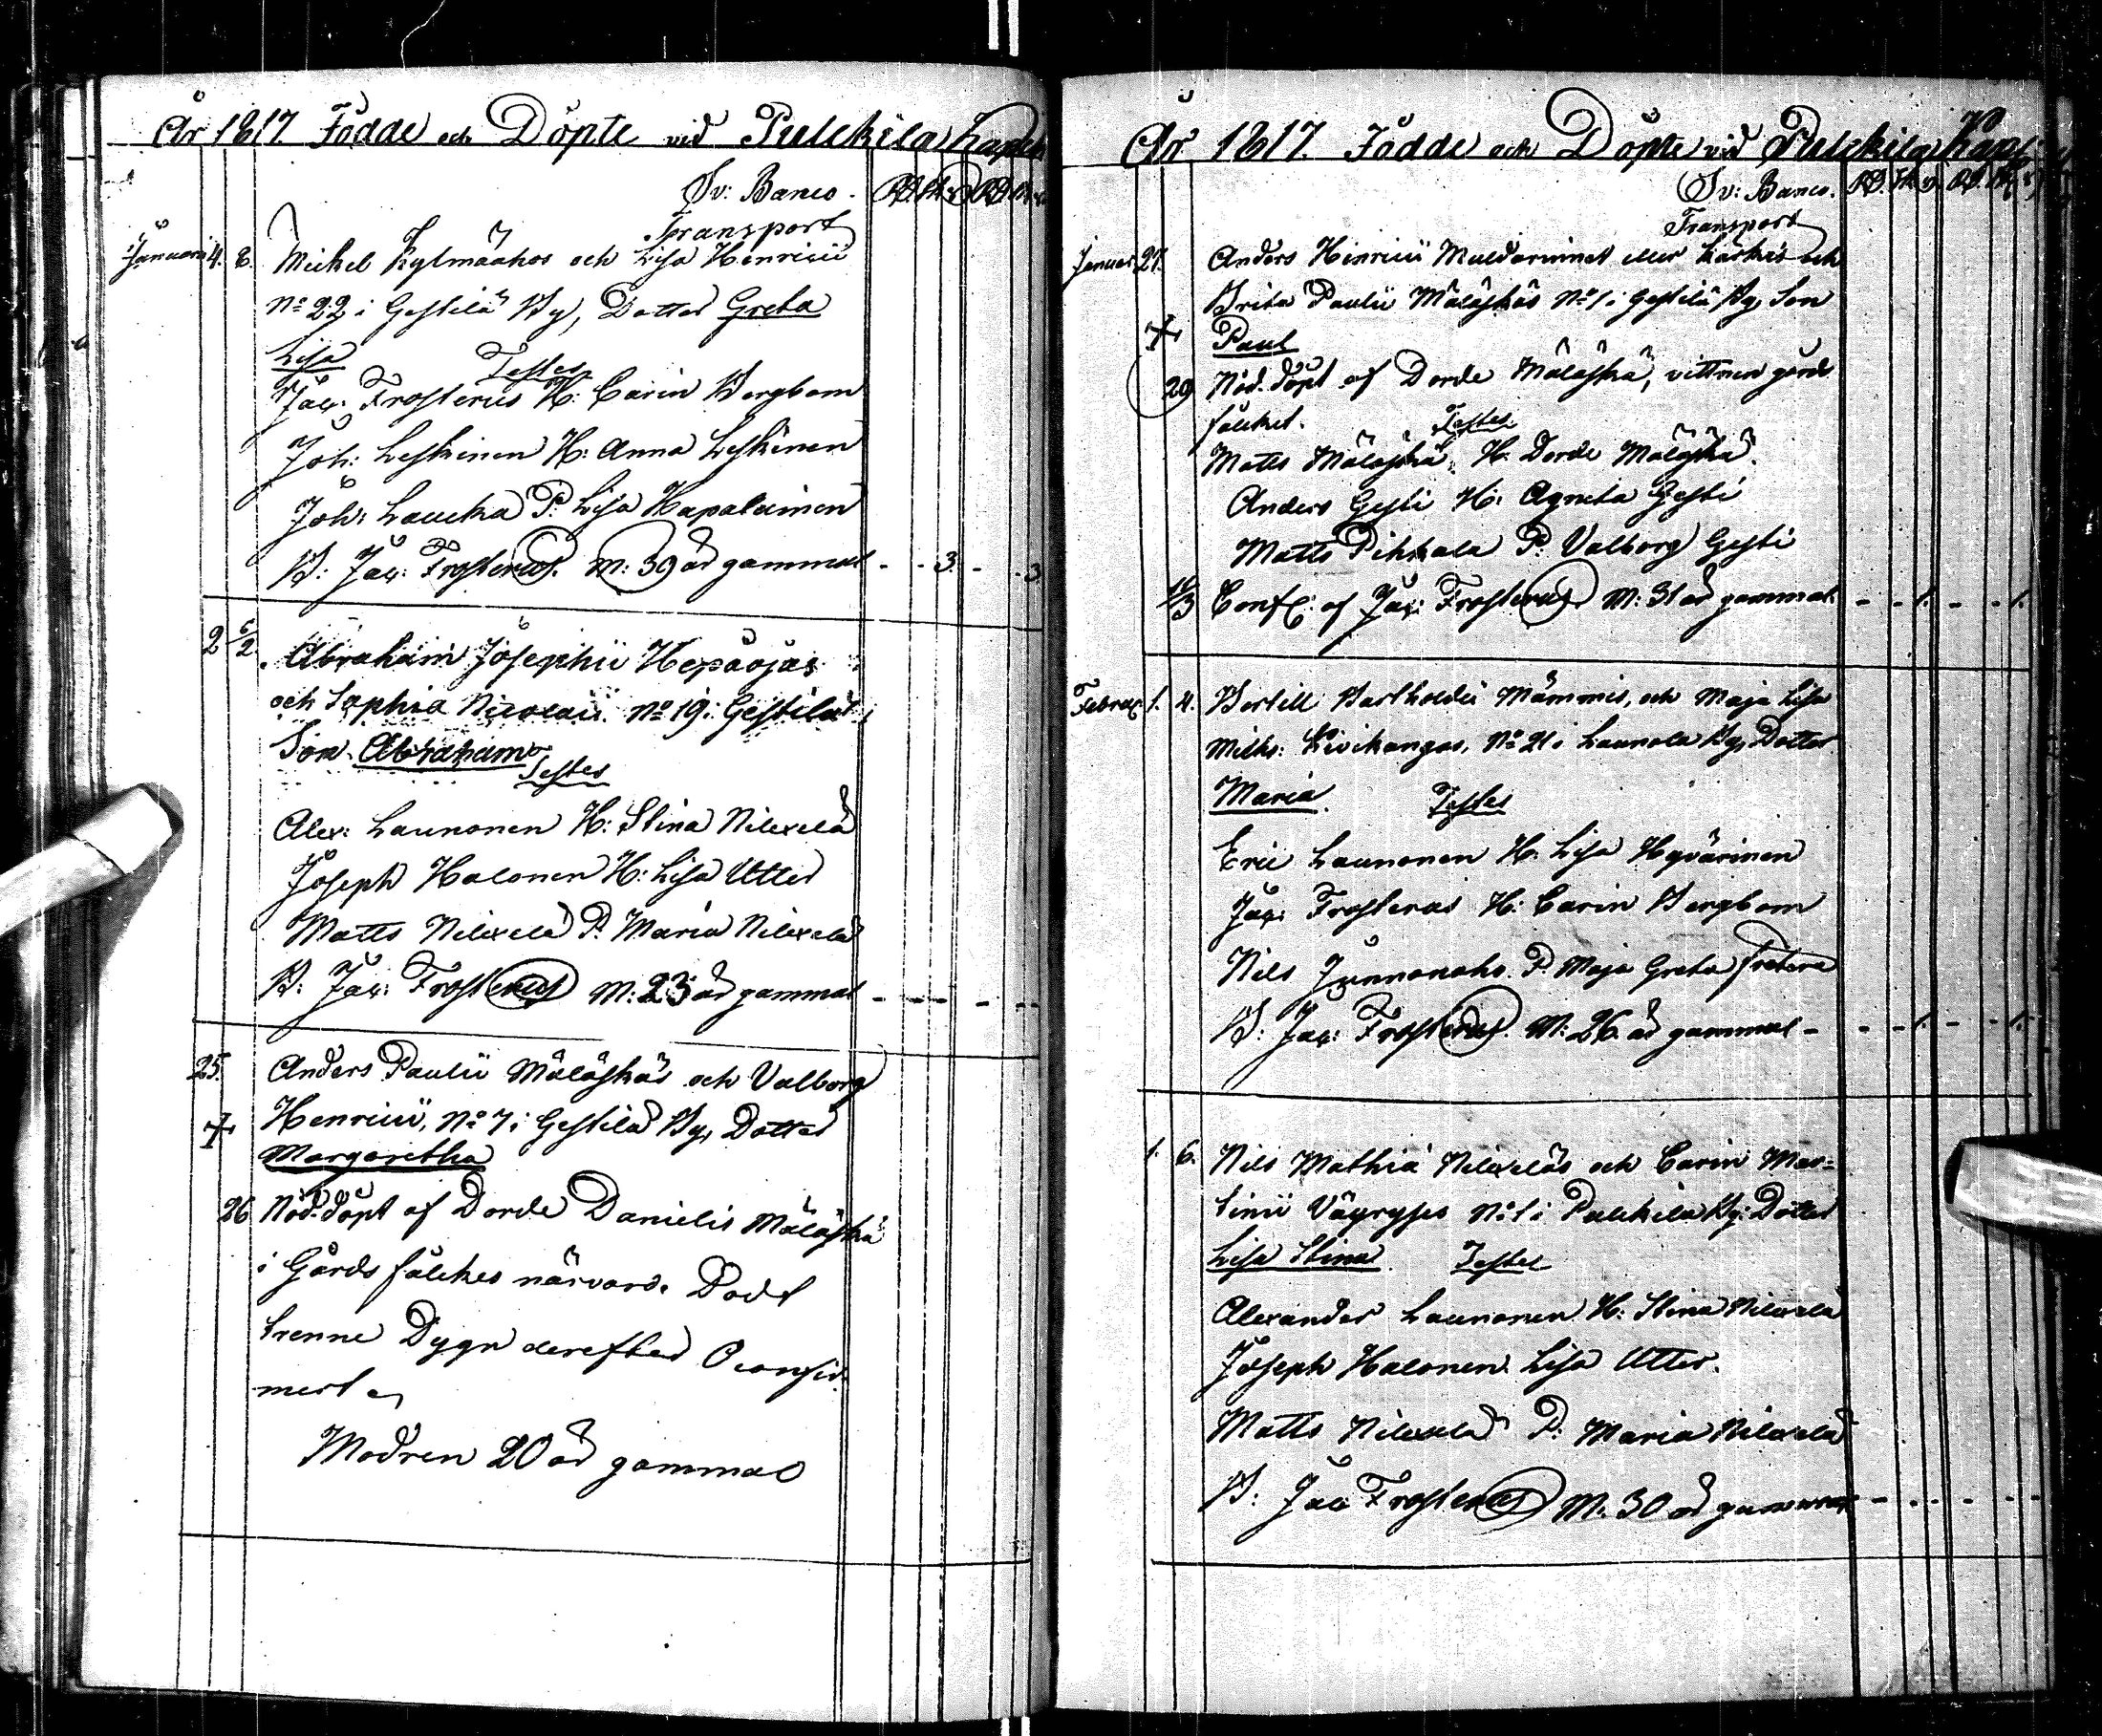 År 1817. Födde och Döpte vid Pulckila Capell
Sv: Banco.
Transport
Januarii 4. 6. Mickel Kylmäahos och Lisa Henricii
No 22 i Gestilä By, Dotter Greta
Lisa Testes
Jac: Frosterus H: Carin Bergbom
Joh: Leskinen H: Anna Leskinen
Joh: Laucka P: Lisa Hapalainen
B: Jac: Frosterus. M: 39 år gammal - - 3. - - 3.
2 6/2. Abraham Josephii Hepäojas
och Sophia Nicolaii No 19 i Gestilä
Son Abraham
Testes
Alex: Launonen H: Stina Nilexelä
Joseph Halonen H: Lisa Utter
Matts Nilexelä P. Maria Nilexelä
B: Jac: Frosterus M: 23 år gammal - - - - -
25. Anders Paulii Mäläskäs och Valborg
+ Henricii, No 7 i Gestilä By, Dotter
Margaretha
26 Nöd. döpt af Dorde Danielis Mäläskä
i Gårds fålckes närvaro. Dödt
trenne Dygn derefter Oconfir-
mert
Modren 20 år gammal
År 1817. Födde och Döpte vid Pulckila Capl
Sv: Banco.
Transport
Januar. 27. Anders Henricii Muldarinnet eller Kärkis och
Brita Paulii Mäläskäs No 1 i Gestilä By, Son
+ Paul
29 Nöd. döpt af Dorde Mäläskä, vittnen gårds
fålcket. Testes
Matts Mäläskä, H: Dorde Mäläskä.
Anders Gesti H: Agneta Gesti
Matts Pihkala P: Valborg Gesti
Conf: af Jac: Frosterus M: 31 år gammal. - - 1. - - 1.
Februar. 1. 4. Bertill Bartholdii Mämmis, och Maja Lisa
Miths: Kivikangas, No 21 i Launola By, Dotter
Maria. Testes
Eric Launonen H: Lisa Hyvärinen
Jac: Frosterus H: Carin Bergbom
Nils Junnonaho P. Maja Greta
B: Jac: Frosterus. M: 26 år gammal - - - 1. - - 1.
1. 6. Nils Mathiä Nilexeläs och Carin Mar=
tinii Väyryses No 1 i Pulckila By: Dotter
Lisa Stina. Testes
Alexander Launonen H: Stina Nilexelä
Joseph Halonen. Lisa Utter.
Matts Nilexelä P: Maria Nilexelä
B: Jac Frosterus M: 30 år gammal - - - - - -